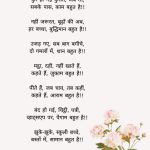 सबके पास, काम बहुत है!!
नहीं जरूरत, बूढ़ों की अब,
हर बच्चा, बुद्धिमान बहुत है!!
उजड़ गए, सब बाग बगीचे,
दो गमलों में, शान बहुत है!!
मट्ठा, दही, नहीं खाते हैं,
कहते हैं, ज़ुकाम बहुत है!!
पीते हैं, जब चाय, तब कहीं,
कहते हैं, आराम बहुत है!!
बंद हो गई, चिट्ठी, पत्री,
व्हाट्सएप पर, पैगाम बहुत है!!
झुके-झुके, स्कूली बच्चे,
बस्तों में, सामान बहुत है!!